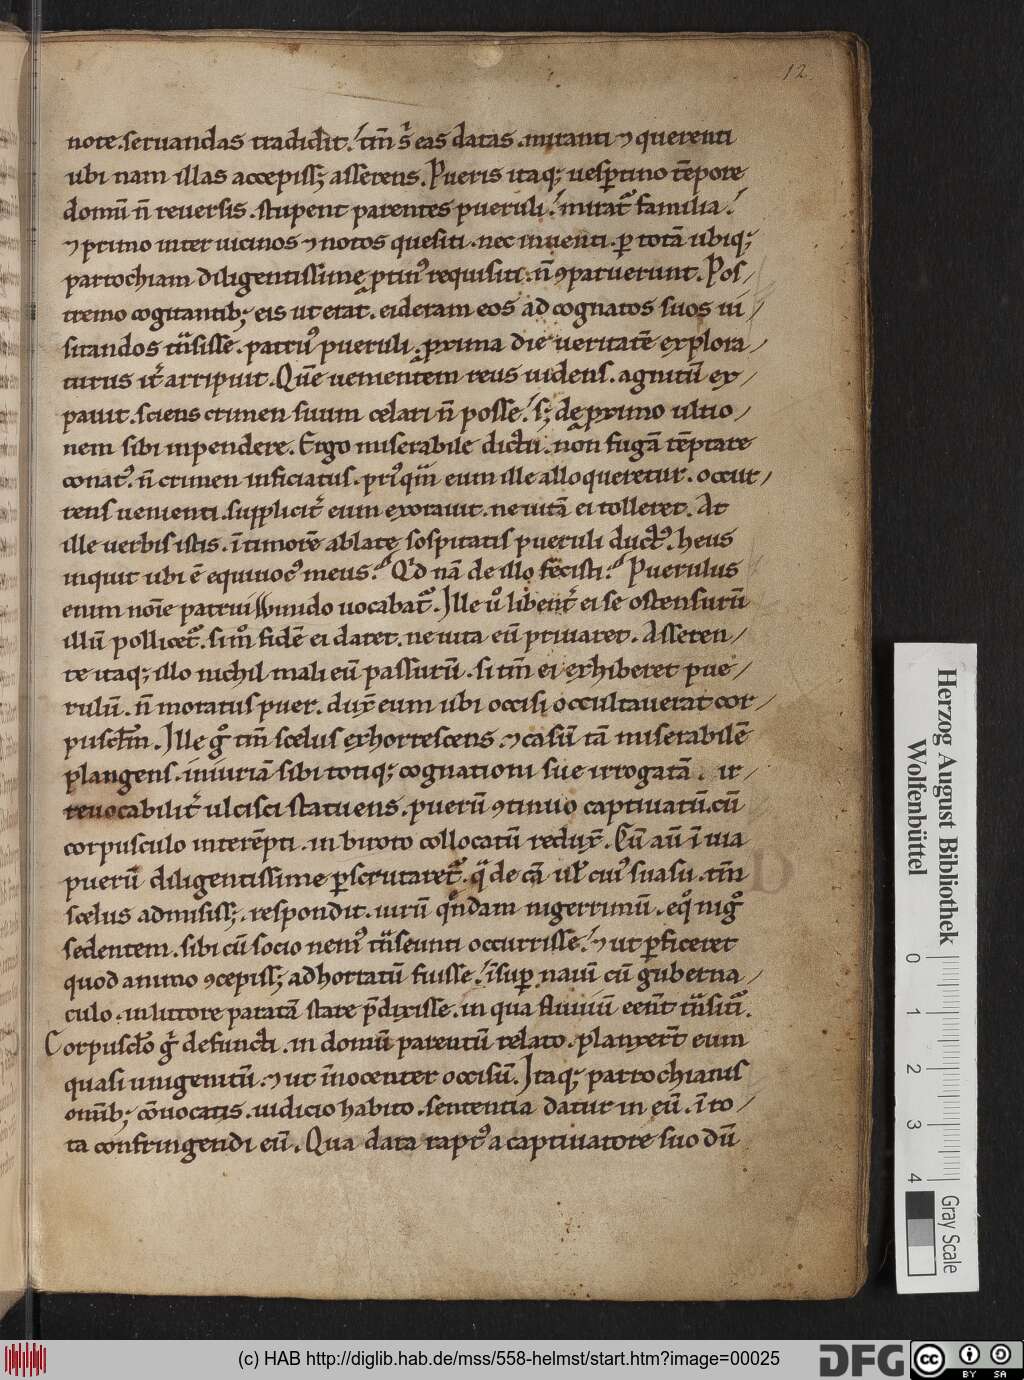 12
note. seruandas tradidit. tm̄ s̓ eas datas. miranti ⁊ querenti
ubi nam illas accepiss; asserens. Pueris itaq; uesp̱tino tēpore
domū n̄ reuersis. stupent parentes pueruli. mirat᷑ familia.
⁊ primo inter uicinos ⁊ notos quesiti. nec inuenti. ꝑ totā ubiq;
parrochiam diligentissime ꝓtin᷒ requisiti. n̄ ꝯparuerunt. Pos/
tremo cogitantib; eis ut erat. eideram eos ad cognatos suos ui
sitandos tͣnsisse. patru᷒ pueruli. ꝓxima die ueritatē explora/
turus it̓ arripuit. Quē uenientem reus uidens. agnitū ex/
pauit. sciens crimen suum celari n̄ posse. s; de ꝓximo ultio/
nem sibi inpendere. Ergo miserabile dictu. non fugā tēptare
conat᷒. n̄ crimen inficiatus. pri᷒qͣm eum ille alloqueretur. occur/
rens uenienti. supplicit̓ eum exorauit. ne uitā ei tolleret. At
ille uerbis istis. ī timorē ablate sospitatis pueruli duct᷒. heus
inquit ubi ē equiuoc᷒ meus? Qd̓ nā de illo fecisti? Puerulus
enim noīe patrui Winido uocabat᷑. Ille u͛o libent̓ ei se ostensurū
illū pollicet᷑. si m͛ fidē ei daret. ne uita eū priuaret. Asseren/
te itaq; illo nichil mali eū passurū. si tm̄ ei exhiberet pue/
rulū. n̄ moratus puer. dux̄ eum ubi occisi occultauerat cor/
pusclm̄. Ille g͛ tm̄ scelus exhorrescens. ⁊ casū tā miserabilē
plangens. iniuriā sibi totiq; cognationi sue irrogatā. ir/
reuocabilit̓ ulcisci statuens. puerū ꝯtinuo captiuatū. cū
corpusculo interēpti. in biroto collocatū redux̄. Cū aū ī uia
puerū diligentissime ꝑscrutaret᷑. qͣ de cā ul̓ cui᷒ suasu. tm̄
scelus admisiss;. respondit. uirū qͦndam nigerrimū. eqͦ nigͦ
sedentem. sibi cū socio nem᷒ tͣnseunti occurrisse. ⁊ ut ꝑficeret
quod animo ꝯcepiss; adhortatū fuisse. īsuꝑ nauī cū guberna/
culo. in littore paratā stare p̄dixisse. in qua fluuiū eēnt tͣnsitͥ.
Corpusclo g͛ defuncti. in domū parentū relato. planxer̄t eum
quasi unigenitū. ⁊ ut īnocenter occisū. Itaq; parrochianis
omīb; cōuocatis. iudicio habito. sententia datur in eū. ī ro/
ta confringendi eū. Qua data rapt᷒ a captiuatore suo dū
Herzog August Bibliothek
Wolfenbüttel
0 1 2 3 4
Gray Scale
(c) HAB http://diglib.hab.de/mss/558-helmst/start.htm?image=00025
DFG
cc BY SA